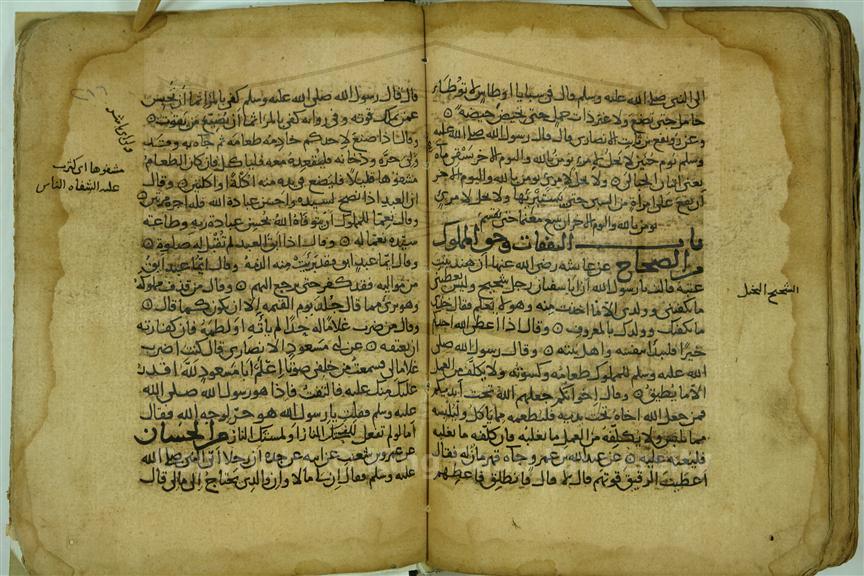 الى النبي صلى الله عليه وسلم قال في سبايا اوطاس لا توطأ
حامل حتى تضع ولا غير ذات حمل حتى تحيض حيضة
وعن رويفع بن ثابت الانصاري قال قال رسول الله صلى الله عليه
وسلم يوم حنين لا يحل لامرئ يؤمن بالله واليوم الاخر يسقي ماءه
يعني اتيان الحبالى ولا يحل لامرئ يؤمن بالله واليوم الاخر
ان يقع على امرأة من السبي حتى يستبريها ولا يحل لامرئ
يومن بالله واليوم الاخر ان يبيع مغنما حتى يقسم
باب النفقات وحق المملوك
من الصحاح عن عائشة رضي الله عنها ان هند بنت
عتبة قالت يا رسول الله ان ابا سفيان رجل شحيح وليس يعطيني
ما يكفيني وولدي الا ما اخذت منه وهو لا يعلم فقال خذي
ما يكفيك وولدك بالمعروف وقال اذا اعطى الله احدكم
خيرا فليبدأ بنفسه واهل بيته وقال رسول الله صلى
الله عليه وسلم للمملوك طعامه وكسوته ولا يكلف من العمل
الا ما يطيق وقال اخوانكم جعلهم الله تحت ايديكم
فمن جعل الله اخاه تحت يديه فليطعمه مما ياكل وليلبسه
مما يلبس ولا يكلفه من العمل ما يغلبه فان كلفه ما يغلبه
فليعنه عليه عن عبد الله بن عمرو جاءه قهرمان له فقال
اعطيت الرقيق قوتهم قال لا قال فانطلق فاعطهم
الشحيح البخيل
قال قال رسول الله صلى الله عليه وسلم كفى بالمرء اثما ان يحبس
عمن يملك قوته وفي رواية كفى بالمرء اثما ان يضيع من يقوت
وقال اذا صنع لاحدكم خادمه طعامه ثم جاءه به وقد
ولي حره ودخانه فليقعده معه فلياكل فان كان الطعام
مشفوها قليلا فليضع في يده منه اكلة او اكلتين وقال
ان العبد اذا نصح لسيده واحسن عبادة الله فله اجره مرتين
وقال نعما للمملوك ان يتوفاه الله بحسن عبادة ربه وطاعة
سيده نعما له وقال اذا ابق العبد لم تقبل له صلوة
وقال ايما عبد ابق فقد برئت منه الذمة وقال ايما عبد ابق
من مواليه فقد كفر حتى يرجع اليهم وقال من قذف مملوكه
وهو بريء مما قال جلد يوم القيمة الا ان يكون كما قال
وقال من ضرب غلاما له حدا لم ياته او لطمه فان كفارته
ان يعتقه عن ابي مسعود الانصاري قال كنت اضرب
غلاما لي فسمعت من خلفي صوتا اعلم ابا مسعود لله اقدر
عليك منك عليه فالتفت فاذا هو رسول الله صلى الله
عليه وسلم فقلت يا رسول الله هو حر لوجه الله فقال
اما لو لم تفعل للفحتك النار او لمستك النار من الحسان
عن عمرو بن شعيب عن ابيه عن جده ان رجلا اتى النبي صلى الله
عليه وسلم فقال ان لي مالا وان والدي يحتاج الى مالي قال
مشفوها اي كثرت
عليه الشفاه الناس
٢١٦